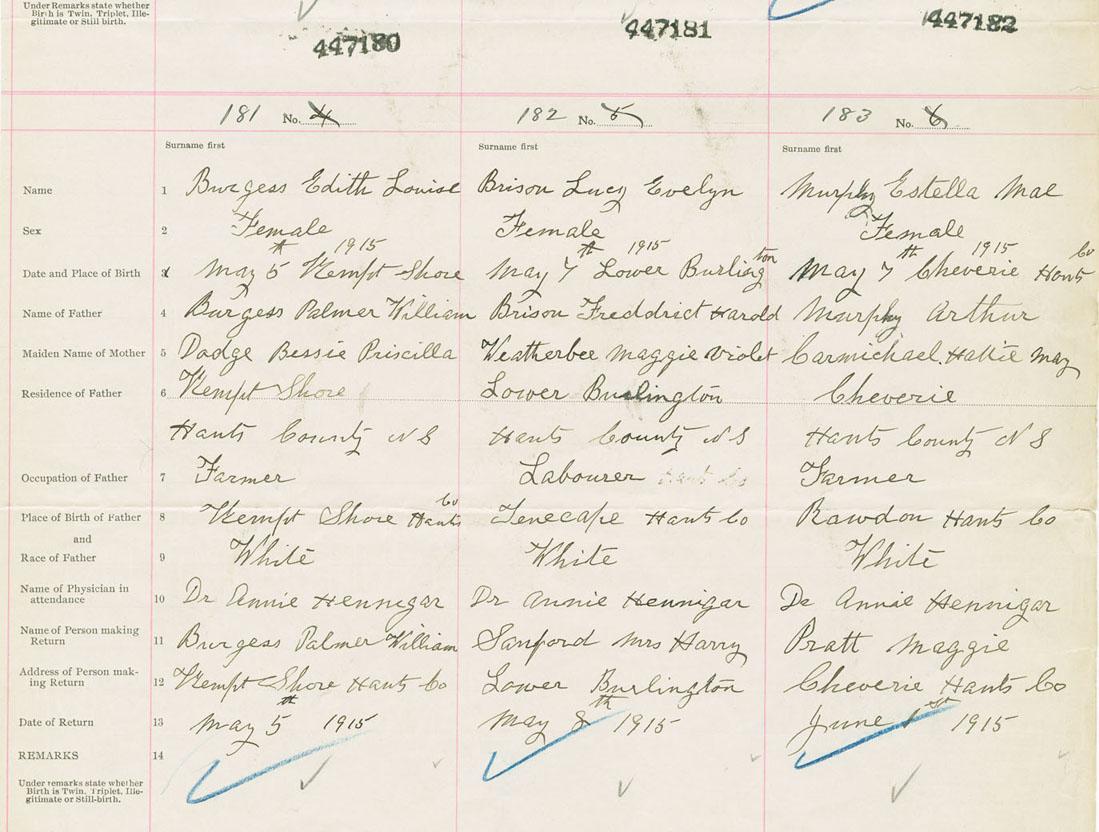 Under Remarks state whether
Birth is Twin, Triplet, Ille-
gitimate or Still birth.
447180 447181 447182
181 No. 4 182 No. 5 183 No. 6
Surname first Surname first Surname first
Name 1 Burgess Edith Louise Brison Lucy Evelyn Murphy Estella Mae
Sex 2 Female Female Female
Date and Place of Birth 3 May 5th 1915 Kempt Shore May 7th 1915 Lower Burlington May 7th 1915 Cheverie Hants Co
Name of Father 4 Burgess Palmer William Brison Freddrict Harold Murphy Arthur
Maiden Name of Mother 5 Dodge Bessie Priscilla Weatherbee Maggie Violet Carmichael Hattie May
Residence of Father 6 Kempt Shore Lower Burlington Cheverie
Hants County N S Hants County N S Hants County N S
Occupation of Father 7 Farmer Labourer Hants Co Farmer
Place of Birth of Father 8 Kempt Shore Hants Co Tenecape Hants Co Rawdon Hants Co
and
Race of Father 9 White White White
Name of Physician in
attendance 10 Dr Annie Hennigar Dr Annie Hennigar Dr Annie Hennigar
Name of Person making
Return 11 Burgess Palmer William Sanford Mrs Harry Pratt Maggie
Address of Person mak-
ing Return 12 Kempt Shore Hants Co Lower Burlington Cheverie Hants Co
Date of Return 13 May 5th 1915 May 8th 1915 June 1st 1915
REMARKS 14
Under remarks state whether
Birth is Twin, Triplet, Ille-
gitimate or Still-birth.